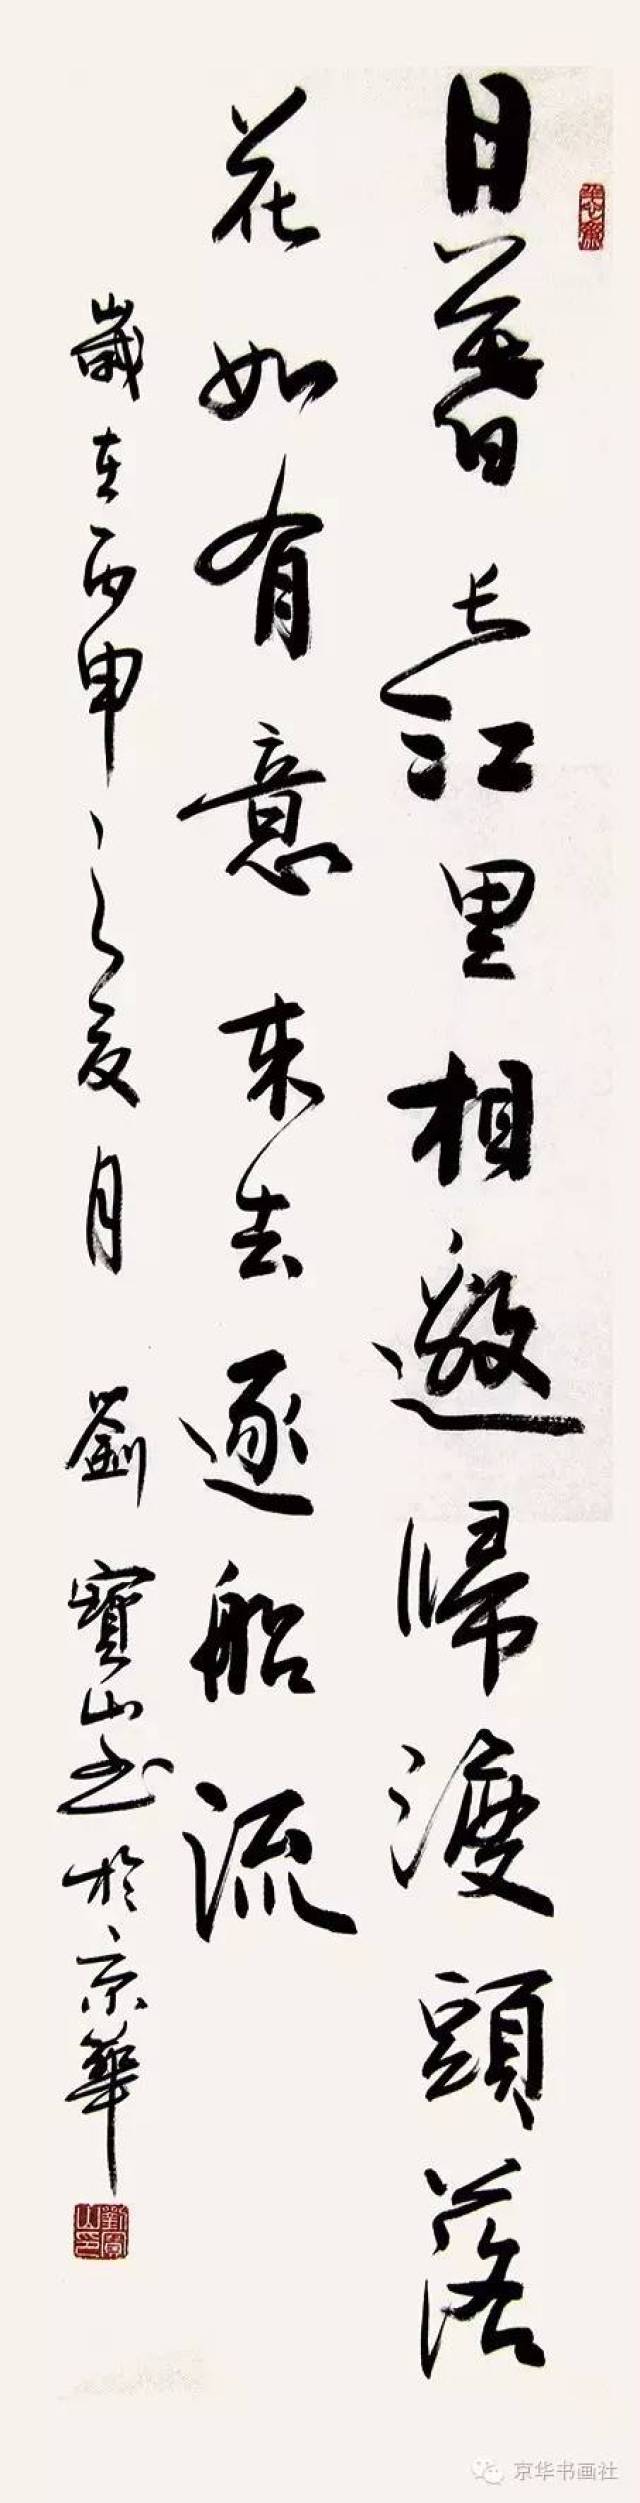 日暮長江里相邀歸渡頭落
花如有意来去逐船流
歲在丙申之夏月 劉寶山书於京華
劉寶山印
京华书画社